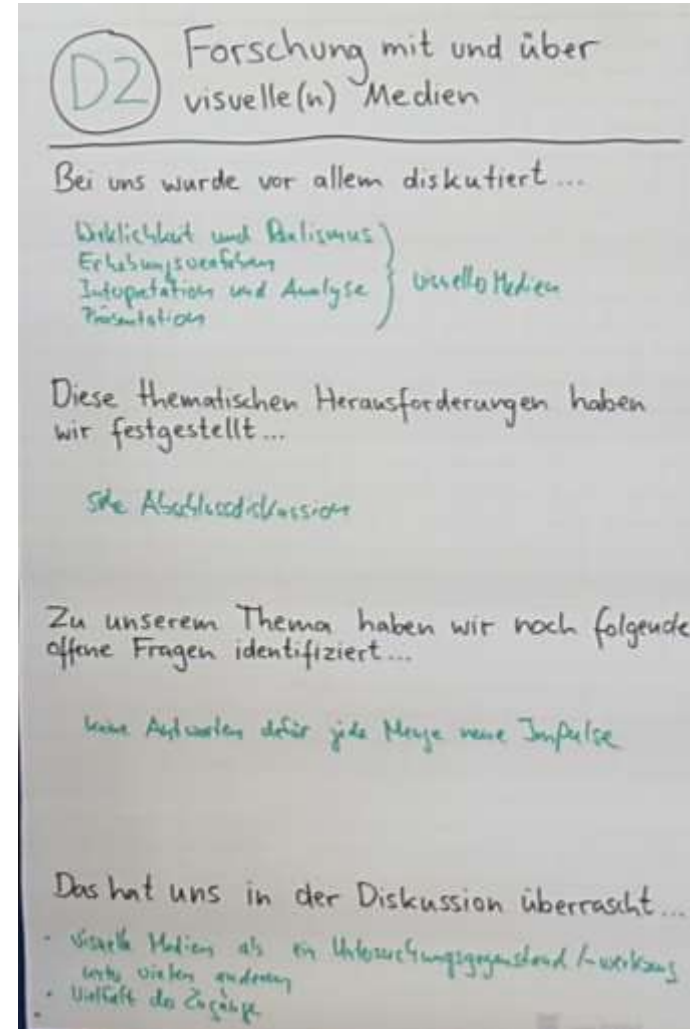 D2
Forschung mit und über
visuelle(n) Medien
Bei uns wurde vor allem diskutiert...
Wirklichkeit und Realismus
Erhebungsverfahren
Interpretation und Analyse
Präsentation
visuelle Medien
Diese thematischen Herausforderungen haben
wir festgestellt...
siehe Abschlussdiskussion
Zu unserem Thema haben wir noch folgende
offene Fragen identifiziert...
keine Antworten dafür jede Menge neue Impulse
Das hat uns in der Diskussion überrascht...
· visuelle Medien als ein Untersuchungsgegenstand /-werkzeug
unter vielen anderen
· Vielfalt der Zugänge
·